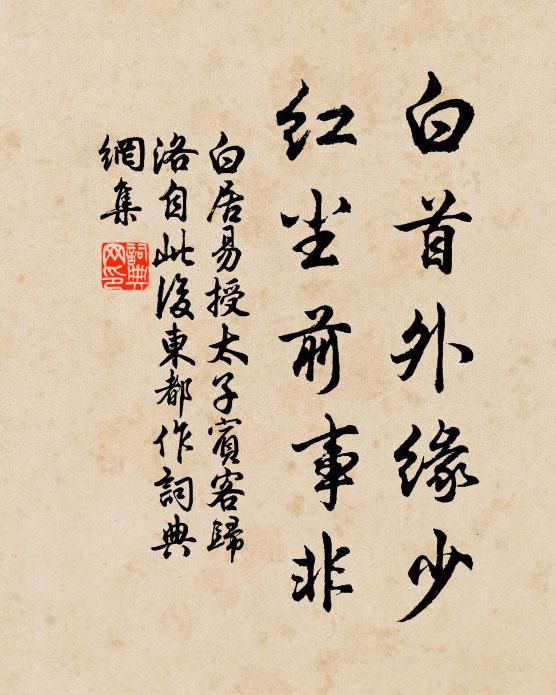 白首外缘少
红尘前事非
白居易授太子賓客歸
洛自此後東都作詞典
網集
詞典网印